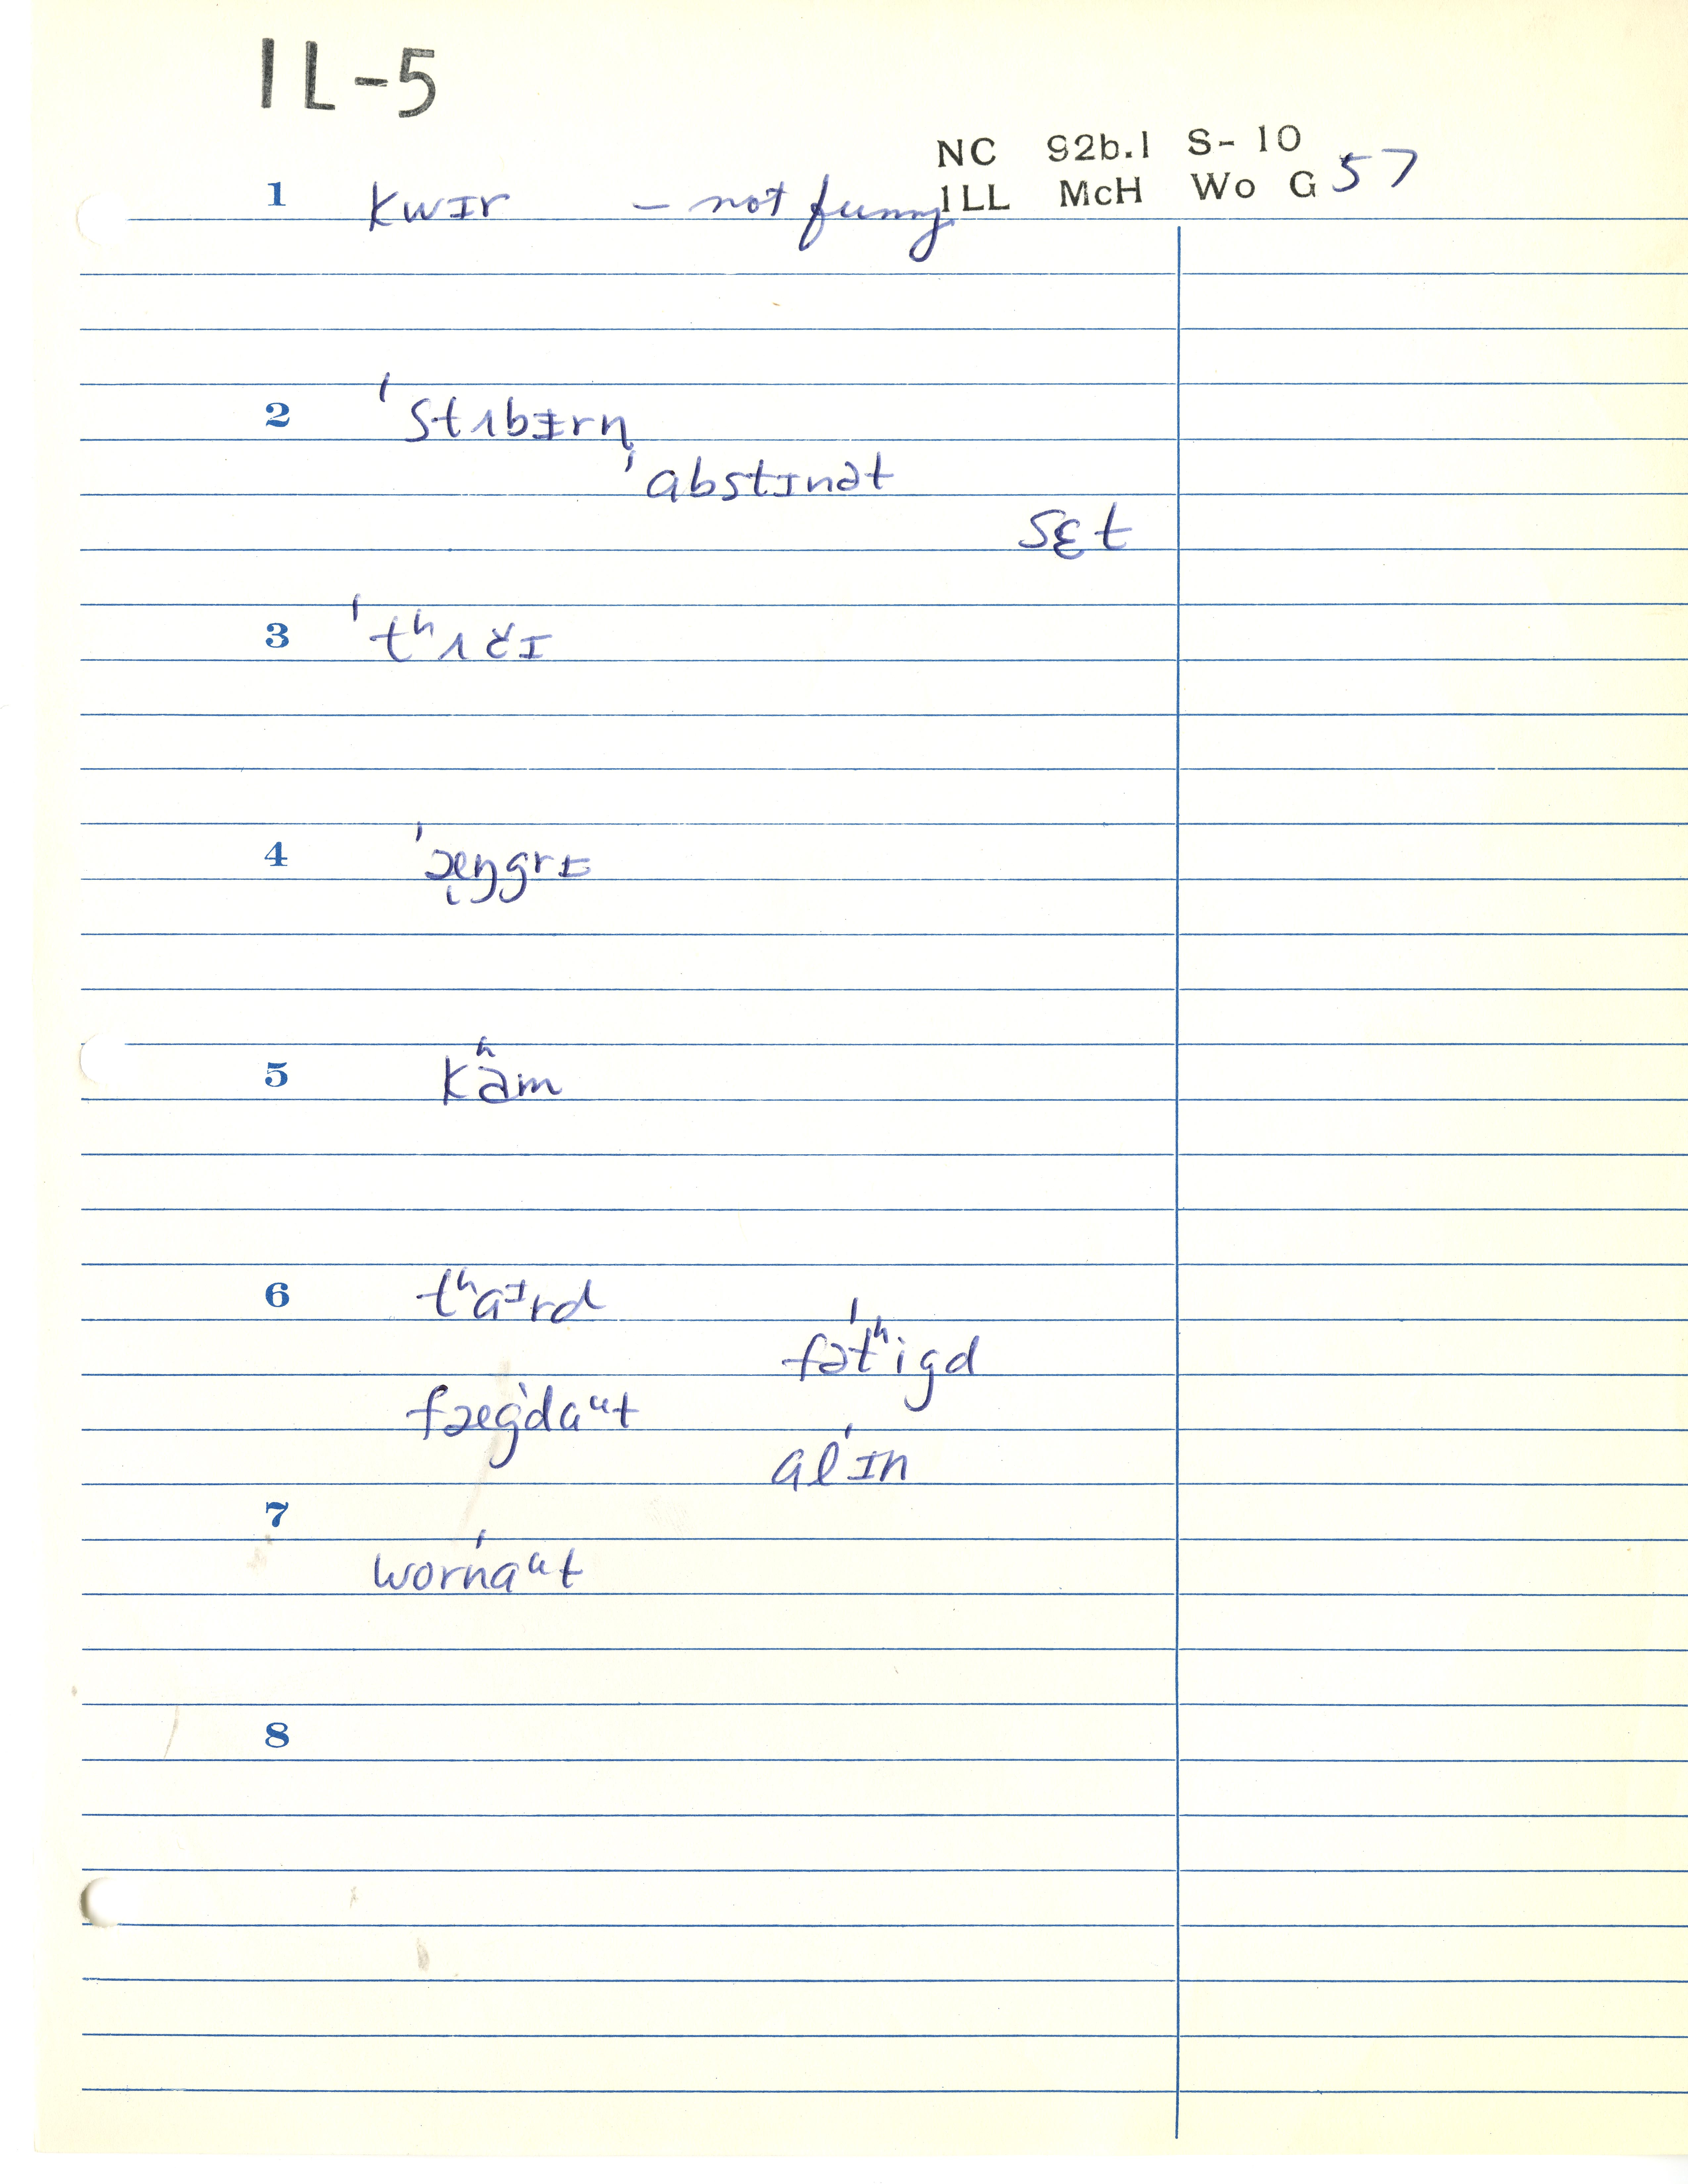 IL-5
NC 92b.1 S- 10
ILL McH Wo G 57
1 kwɪr – not funny
2 ˈstʌbɪ̵rn
ˈɑbstɪnət
sɛt
3 ˈtʰʌčɪ
4 ˈæŋgrɪ
5 kʰɑm
6 tʰɑᶦrd
fəˈtʰigd
fægˈdɑᵘt
ɑlˈɪn
7
wornˈɑᵘt
8